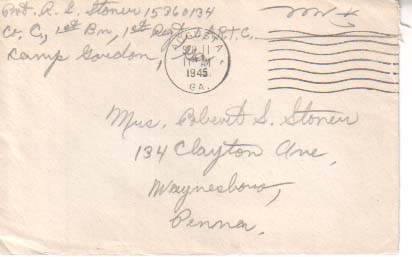 Pvt. R. S. Stoner 15360134
Co. C, 1st Bn, 1st Regt. A.R.T.C.,
Camp Gordon, Ga.
AUGUSTA
SEP 11
11 AM
1945
GA.
Mrs. Robert S. Stoner
134 Clayton Ave,
Waynesboro,
Penna.